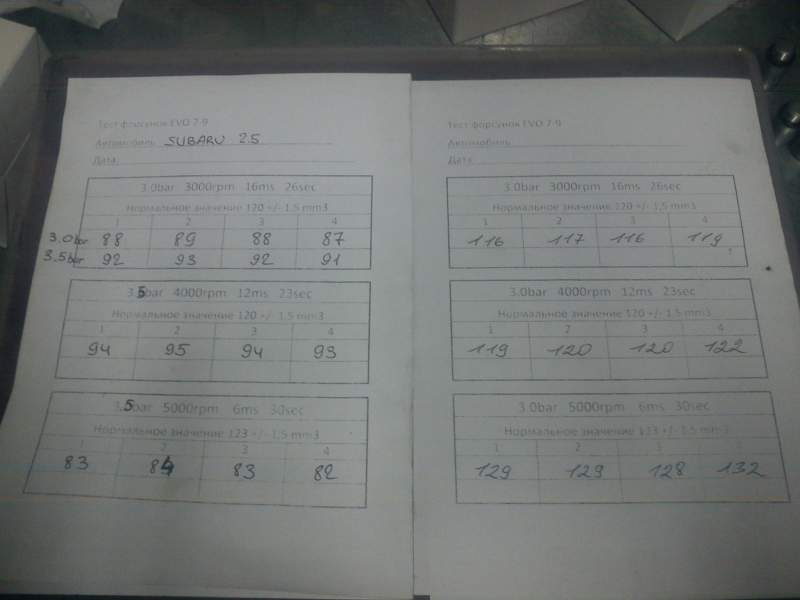 Тест форсунок EVO 7-9
Автомобиль SUBARU 2.5
Дата
3.0bar 3000rpm 16ms 26sec
Нормальное значение 120 +/- 1,5 mm3
1 2 3 4
3.0bar 88 89 88 87
3.5bar 92 93 92 91
3.5bar 4000rpm 12ms 23sec
Нормальное значение 120 +/- 1,5 mm3
1 2 3 4
94 95 94 93
3.5bar 5000rpm 6ms 30sec
Нормальное значение 123 +/- 1,5 mm3
1 2 3 4
83 84 83 82
Тест форсунок EVO 7-9
Автомобиль
Дата
3.0bar 3000rpm 16ms 26sec
Нормальное значение 120 +/- 1,5 mm3
1 2 3 4
116 117 116 119
3.0bar 4000rpm 12ms 23sec
Нормальное значение 120 +/- 1,5 mm3
1 2 3 4
119 120 120 122
3.0bar 5000rpm 6ms 30sec
Нормальное значение 123 +/- 1,5 mm3
1 2 3 4
129 129 128 132